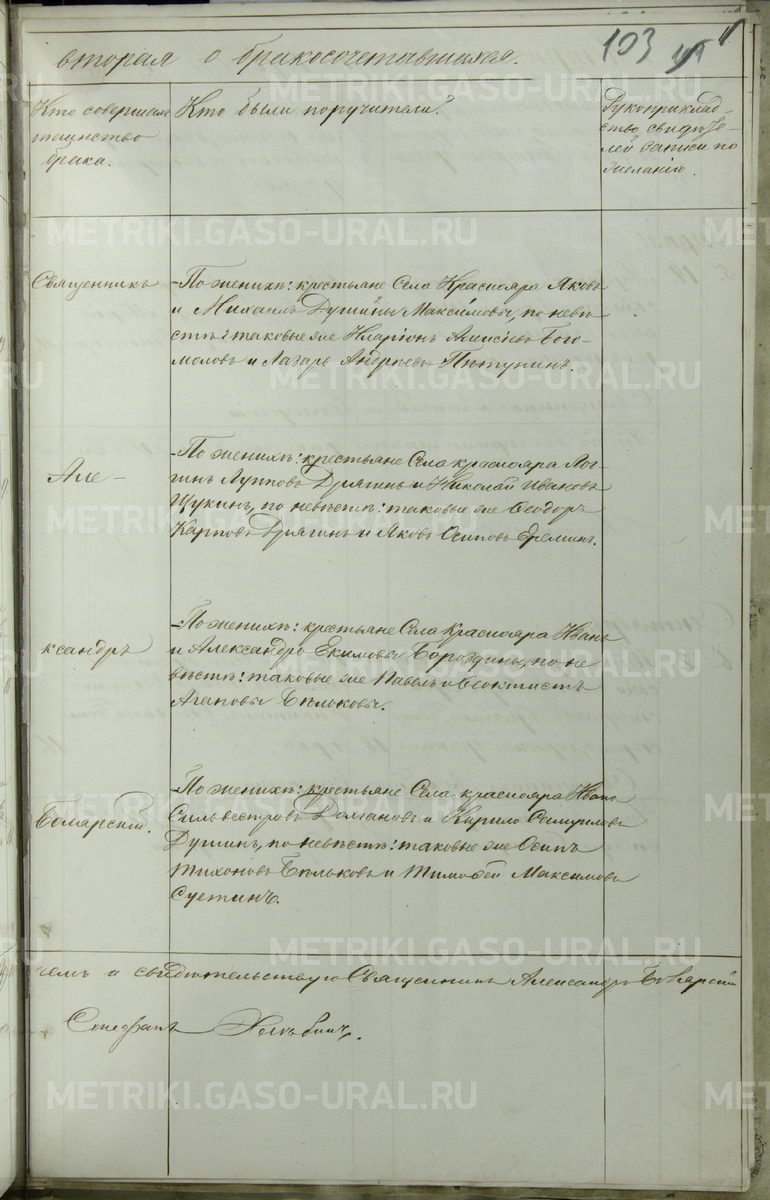 вторая о бракосочетавшихся.
103
Кто совершалъ
таинство
брака.
Кто были поручители?
Рукоприклад-
ство свидѣте-
лей записи по
желанію.
Священникъ
-По женихѣ: крестьяне Села Краснояра Яковъ
и Михаилъ Душины Максимовы, по невѣ-
стѣ: таковые же Иларіонъ Алексіевъ Бого-
моловъ и Лазарь Андреевъ Пѣтунинъ.
Але-
-По женихѣ: крестьяне Села краснояра Лог-
гинъ Лупповъ Дрягинъ и Николай Ивановъ
Щукинъ, по невѣстѣ: таковые же Ѳеодоръ
Карповъ Дрягинъ и Яковъ Осиповъ Ереминъ.
ксандръ
-По женихѣ: крестьяне Села Краснояра Иванъ
и Александръ Екимовы Бороздины, по не
вѣстѣ: таковые же Павелъ и Ѳеоктистъ
Агаповы Бѣльковы.
Боярскій.
-По женихѣ: крестьяне Села краснояра Иванъ
Сильвестровъ Долгановъ и Кирило Самуиловъ
Душинъ, по невѣстѣ: таковые же Осипъ
Тихоновъ Бѣльковъ и Тимоѳей Максимовъ
Суетинъ.
чемъ и свидѣтельствую Священникъ Александръ Боярскій
Стефанъ
METRIKI.GASO-URAL.RU